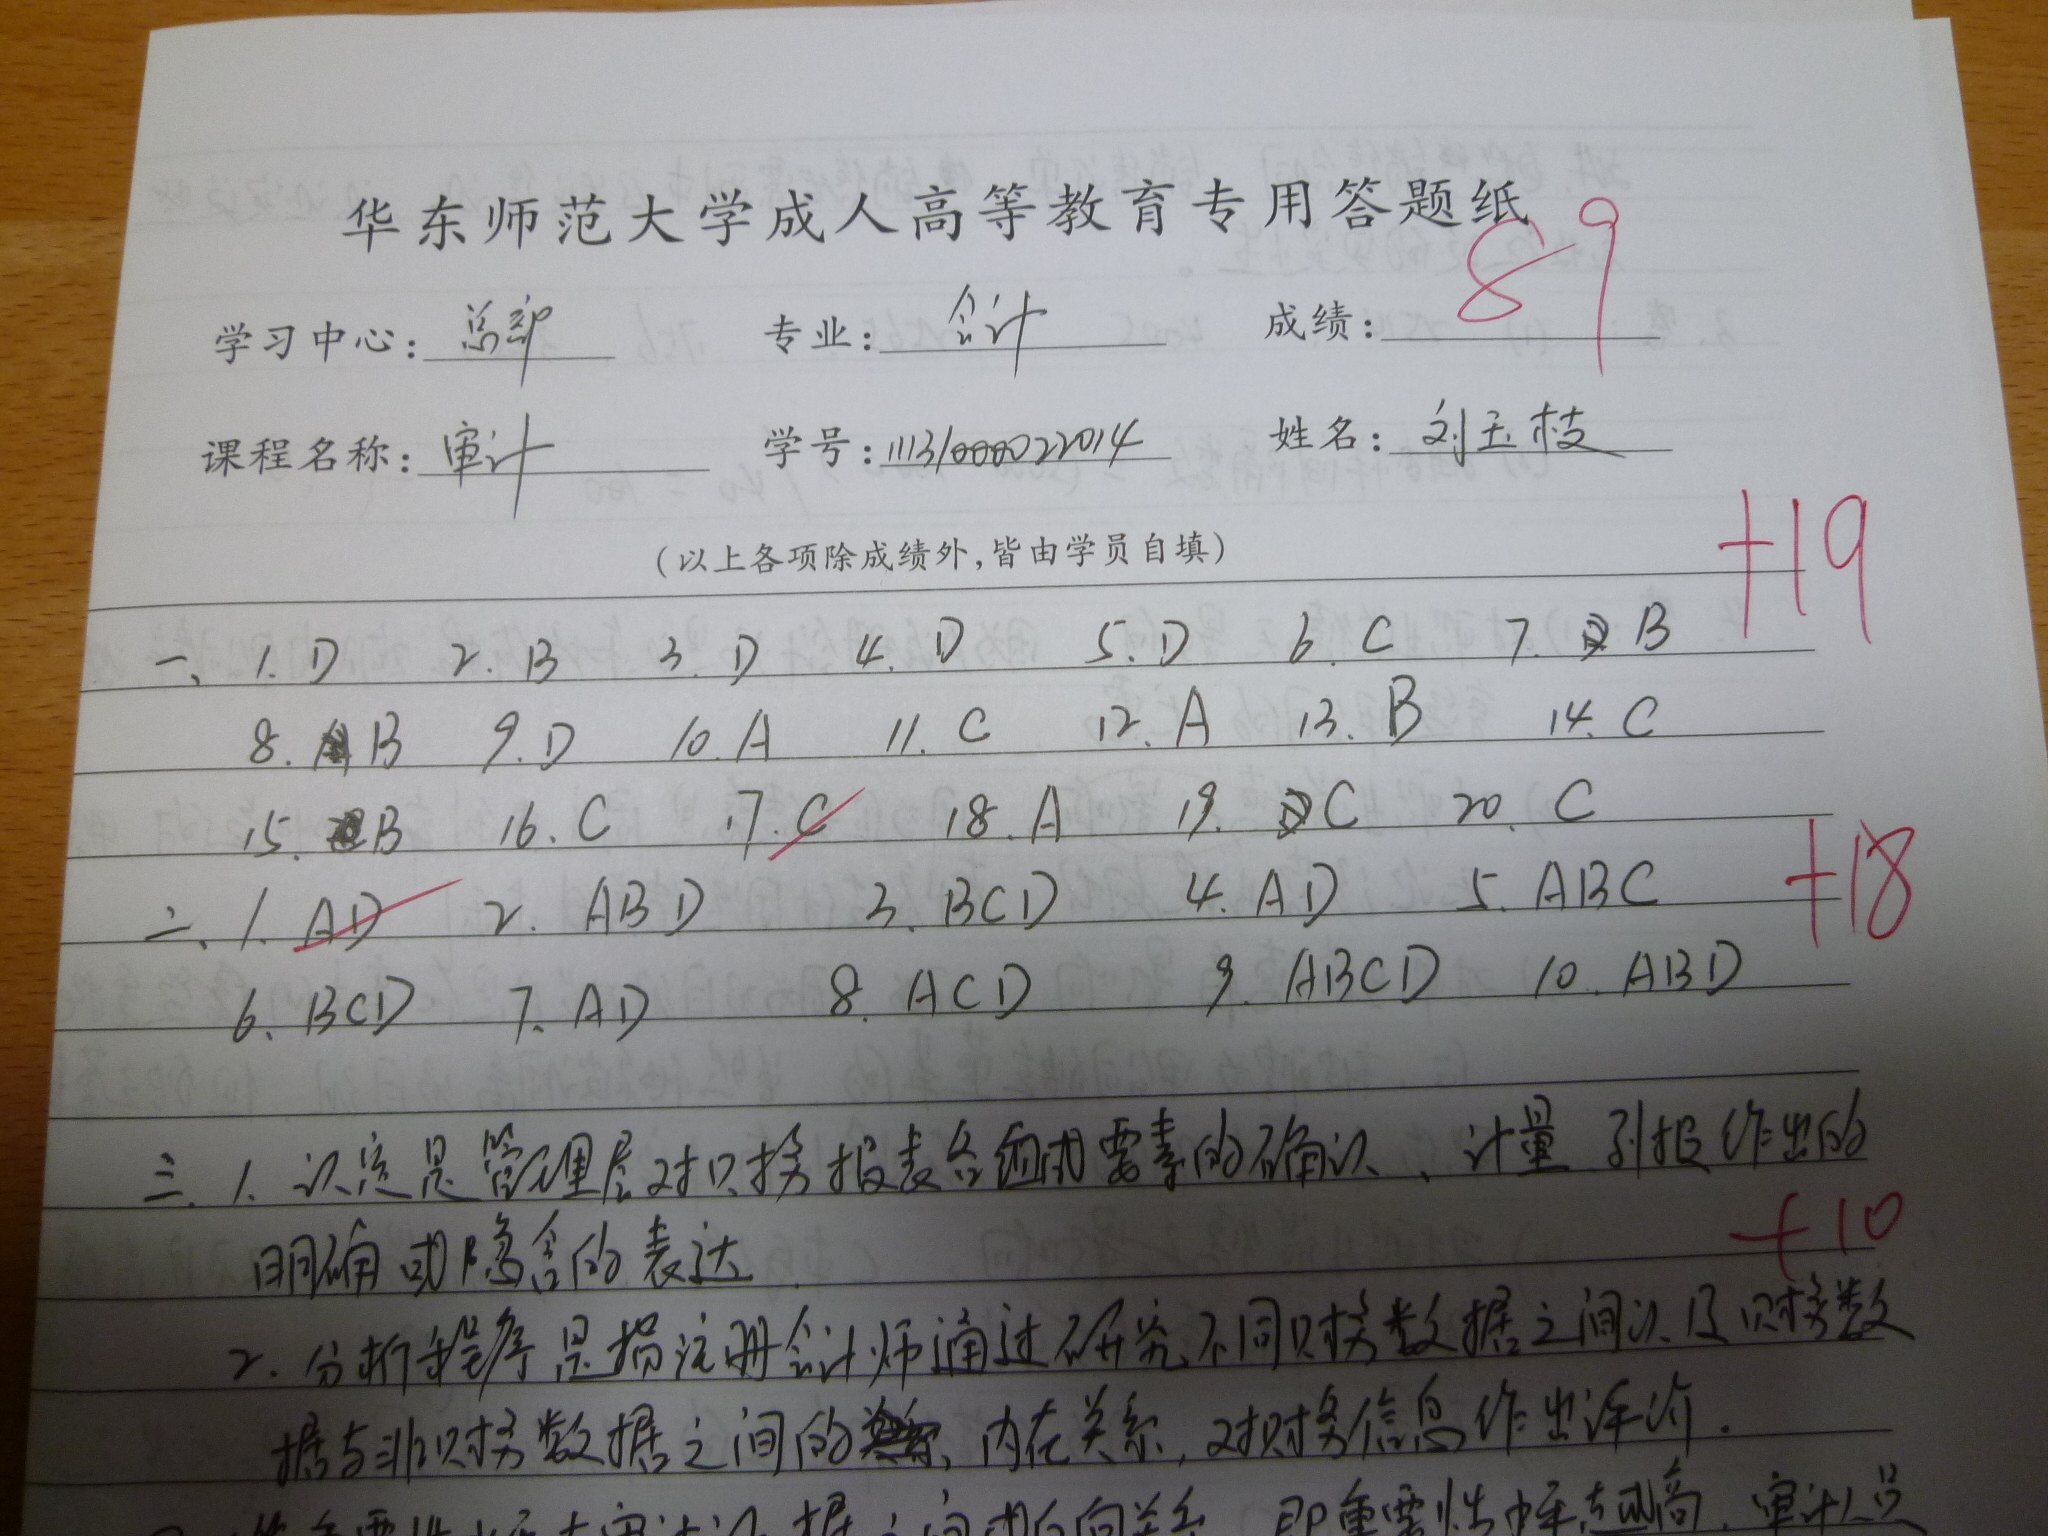 华东师范大学成人高等教育专用答题纸
学习中心: 总部 专业: 会计 成绩: 89
课程名称: 审计 学号: 11131000022014 姓名: 刘玉枝
(以上各项除成绩外,皆由学员自填)
+19
一、1. D 2. B 3. D 4. D 5. D 6. C 7. B
8. B 9. D 10. A 11. C 12. A 13. B 14. C
15. B 16. C 17. C 18. A 19. C 20. C
+18
二、1. AD 2. ABD 3. BCD 4. AD 5. ABC
6. BCD 7. AD 8. ACD 9. ABCD 10. ABD
三、1. 认定是管理层对财务报表各组成要素的确认、计量、列报作出的
明确或隐含的表达.
+10
2. 分析程序是指注册会计师通过研究不同财务数据之间以及财务数
据与非财务数据之间的内在关系,对财务信息作出评价.
审计证据之间成反向关系,即重要性水平越高,审计人员